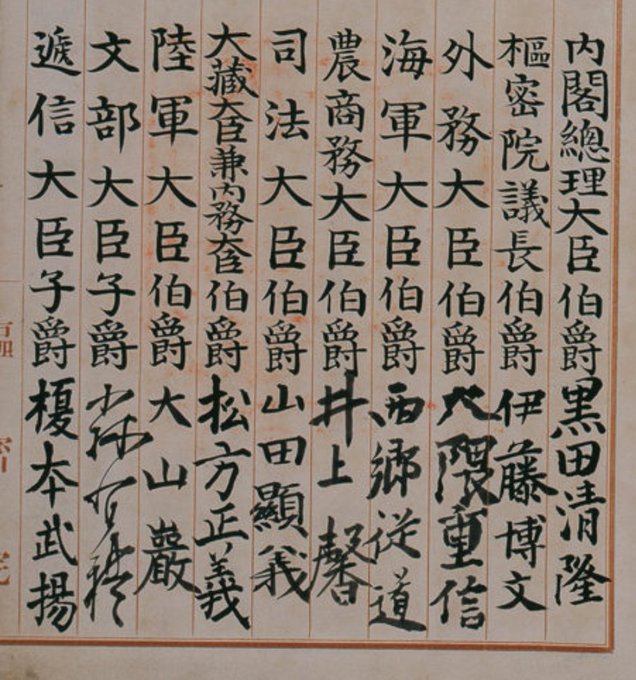 內閣總理大臣伯爵黒田清隆
樞密院議長伯爵伊藤博文
外務大臣伯爵大隈重信
海軍大臣伯爵西郷従道
農商務大臣伯爵井上馨
司法大臣伯爵山田顯義
大藏大臣兼內務大臣伯爵松方正義
陸軍大臣伯爵大山巖
文部大臣子爵森有禮
遞信大臣子爵榎本武揚